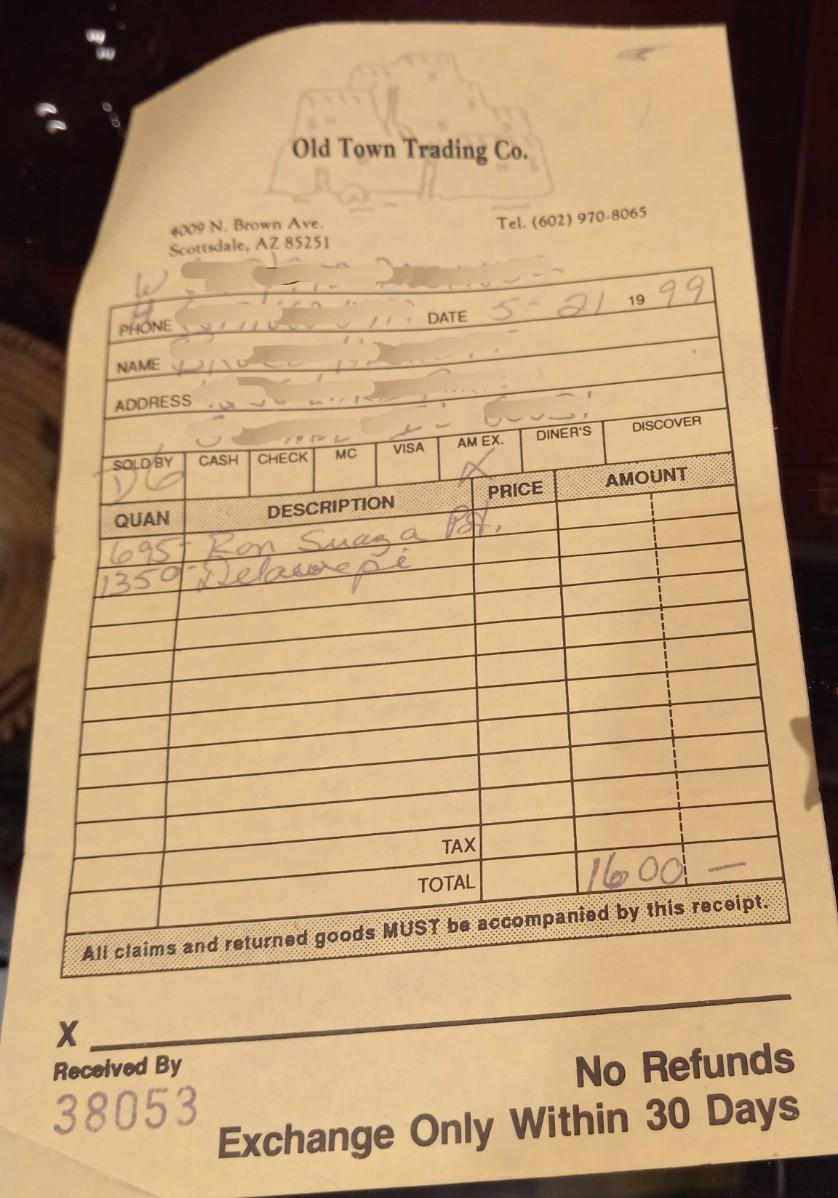 Old Town Trading Co.
4009 N. Brown Ave.
Scottsdale, AZ 85251
Tel. (602) 970-8065
W
H
PHONE DATE 5-21 19 99
NAME
ADDRESS
SOLD BY CASH CHECK MC VISA AM EX. DINER'S DISCOVER
DG X
QUAN DESCRIPTION PRICE AMOUNT
695- Ron Suazo Pot.
1350-
TAX
TOTAL 1600 —
All claims and returned goods MUST be accompanied by this receipt.
X
Received By
38053
No Refunds
Exchange Only Within 30 Days